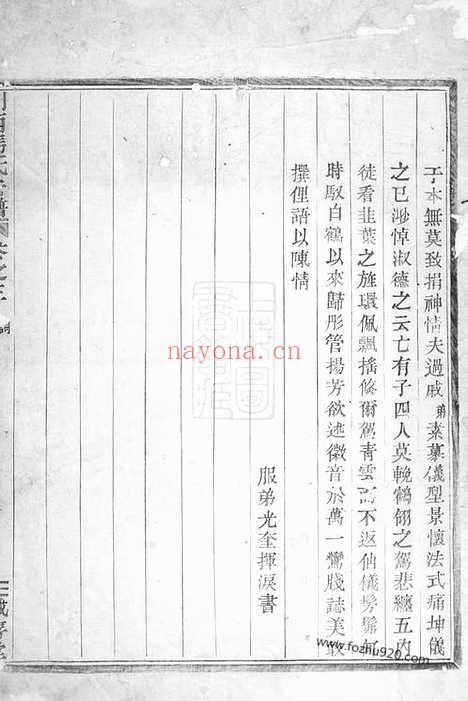 本無莫致捐神情夫過戚弟素慕儀型景懷法式痛坤儀
之已渺悼淑德之云亡有子四人莫輓鶴翎之駕悲纏五內
徒看韭葉之旌環佩飄搖倏爾駕青雲而不返仙儀髣髴何
時馭白鶴以來歸彤管揚芳欲述徽音於萬一鸞牋誌美敢
撰俚語以陳情
服弟光奎揮淚書
卷之三
nayona.cn
www.fozhu920.com